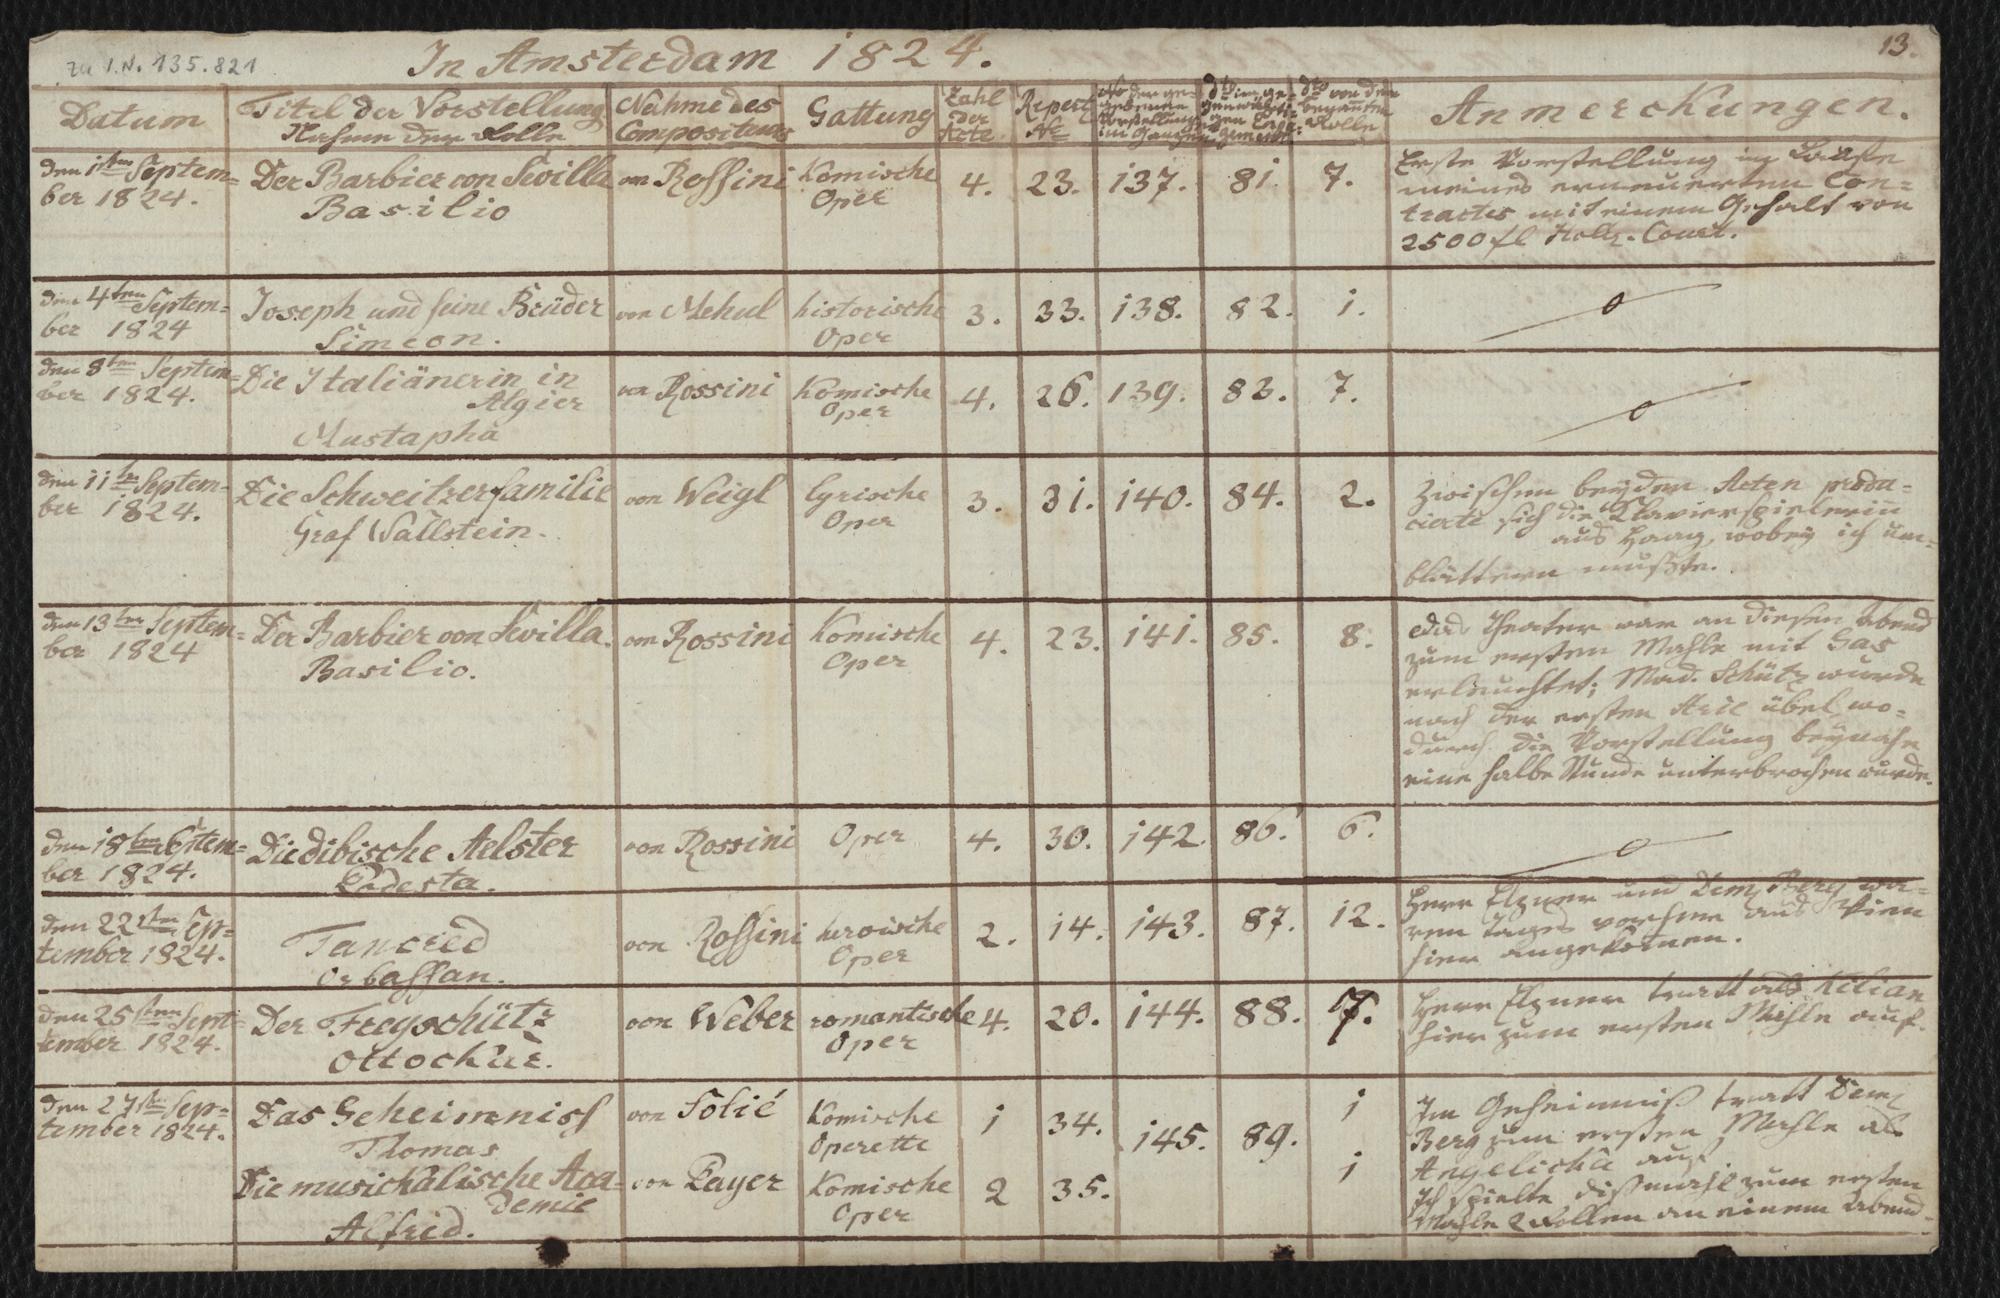 zu I.N. 135.821
In Amsterdam 1824.
13.
Datum
Titel der Vorstellung
Nahme der Rolle
Nahme des
Compositeurs
Gattung
Zahl
der
Acte
Repert
No
No der ge-
gebenen
Vorstellung
im Ganzen
dto im ge-
genwärti-
gen Enga-
gement
dto von der
benannten
Rolle
Anmerckungen.
den 1sten Septem=
ber 1824.
Der Barbier von Sevilla
Basilio
von Rossini
Komische
Oper
4.
23.
137.
81
7.
Erste Vorstellung im Laufe
meines erneuerten Con=
tractes mit einem Gehalt von
2500 fl Holl. Cour.
den 4ten Septem=
ber 1824
Joseph und seine Brüder
Simeon.
von Mehul
historische
Oper
3.
33.
138.
82.
1.
den 8ten Septem=
ber 1824.
Die Italiänerin in
Algier
Mustapha
von Rossini
Komische
Oper
4.
26.
139.
83.
7.
den 11ten Septem=
ber 1824.
Die Schweitzerfamilie
Graf Wallstein.
von Weigl
lyrische
Oper
3.
31.
140.
84.
2.
Zwischen beyden Acten produ=
cierte sich die Klavierspielerin
aus Haag, wobey ich um=
blättern mußte.
den 13ten Septem=
ber 1824
Der Barbier von Sevilla.
Basilio.
von Rossini
Komische
Oper
4.
23.
141.
85.
8.
Das Theater war an diesem Abend
zum ersten Mahle mit Gas
erleuchtet; Mad. Schütz wurde
nach der ersten Arie übel, wo=
durch die Vorstellung beynahe
eine halbe Stunde unterbrochen wurde.
den 18ten Septem=
ber 1824.
Die dibische Aelster
Podesta.
von Rossini
Oper
4.
30.
142.
86.
6.
den 22sten Sep=
tember 1824.
Tancred
Orbassan.
von Rossini
heroische
Oper
2.
14.
143.
87.
12.
Herr Elzner und Dem. Berg wa=
ren Tages vorher aus Wien
hier angekommen.
den 25sten Sept=
tember 1824.
Der Freyschütz
Ottochar.
von Weber
romantische
Oper
4.
20.
144.
88.
7.
Herr Elzner tratt als Kilian
hier zum ersten Mahle auf.
den 27sten Sep=
tember 1824.
Das Geheimniss
Thomas
von Solié
Komische
Operette
1
34.
145.
89.
1
Im Geheimniß tratt Dem.
Berg zum ersten Mahle als
Angelicka auf.
Die musickalische Aca=
demie
Alfred.
von Payer
Komische
Oper
2
35.
1
Ich spielte dißmahl zum ersten
Mahle 2 Rollen an einem Abend.